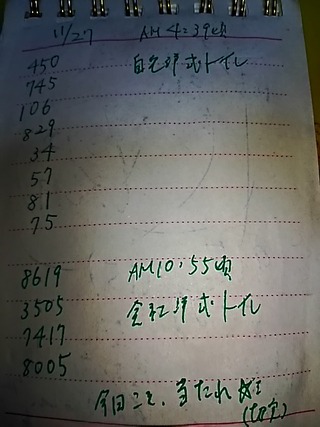 11/27 AM 4:39頃
450 自宅洋式トイレ
745
106
829
34
57
81
75
8619 AM10:55頃
3505 会社洋式トイレ
7417
8005
今回こそ、当たれ
(切実)